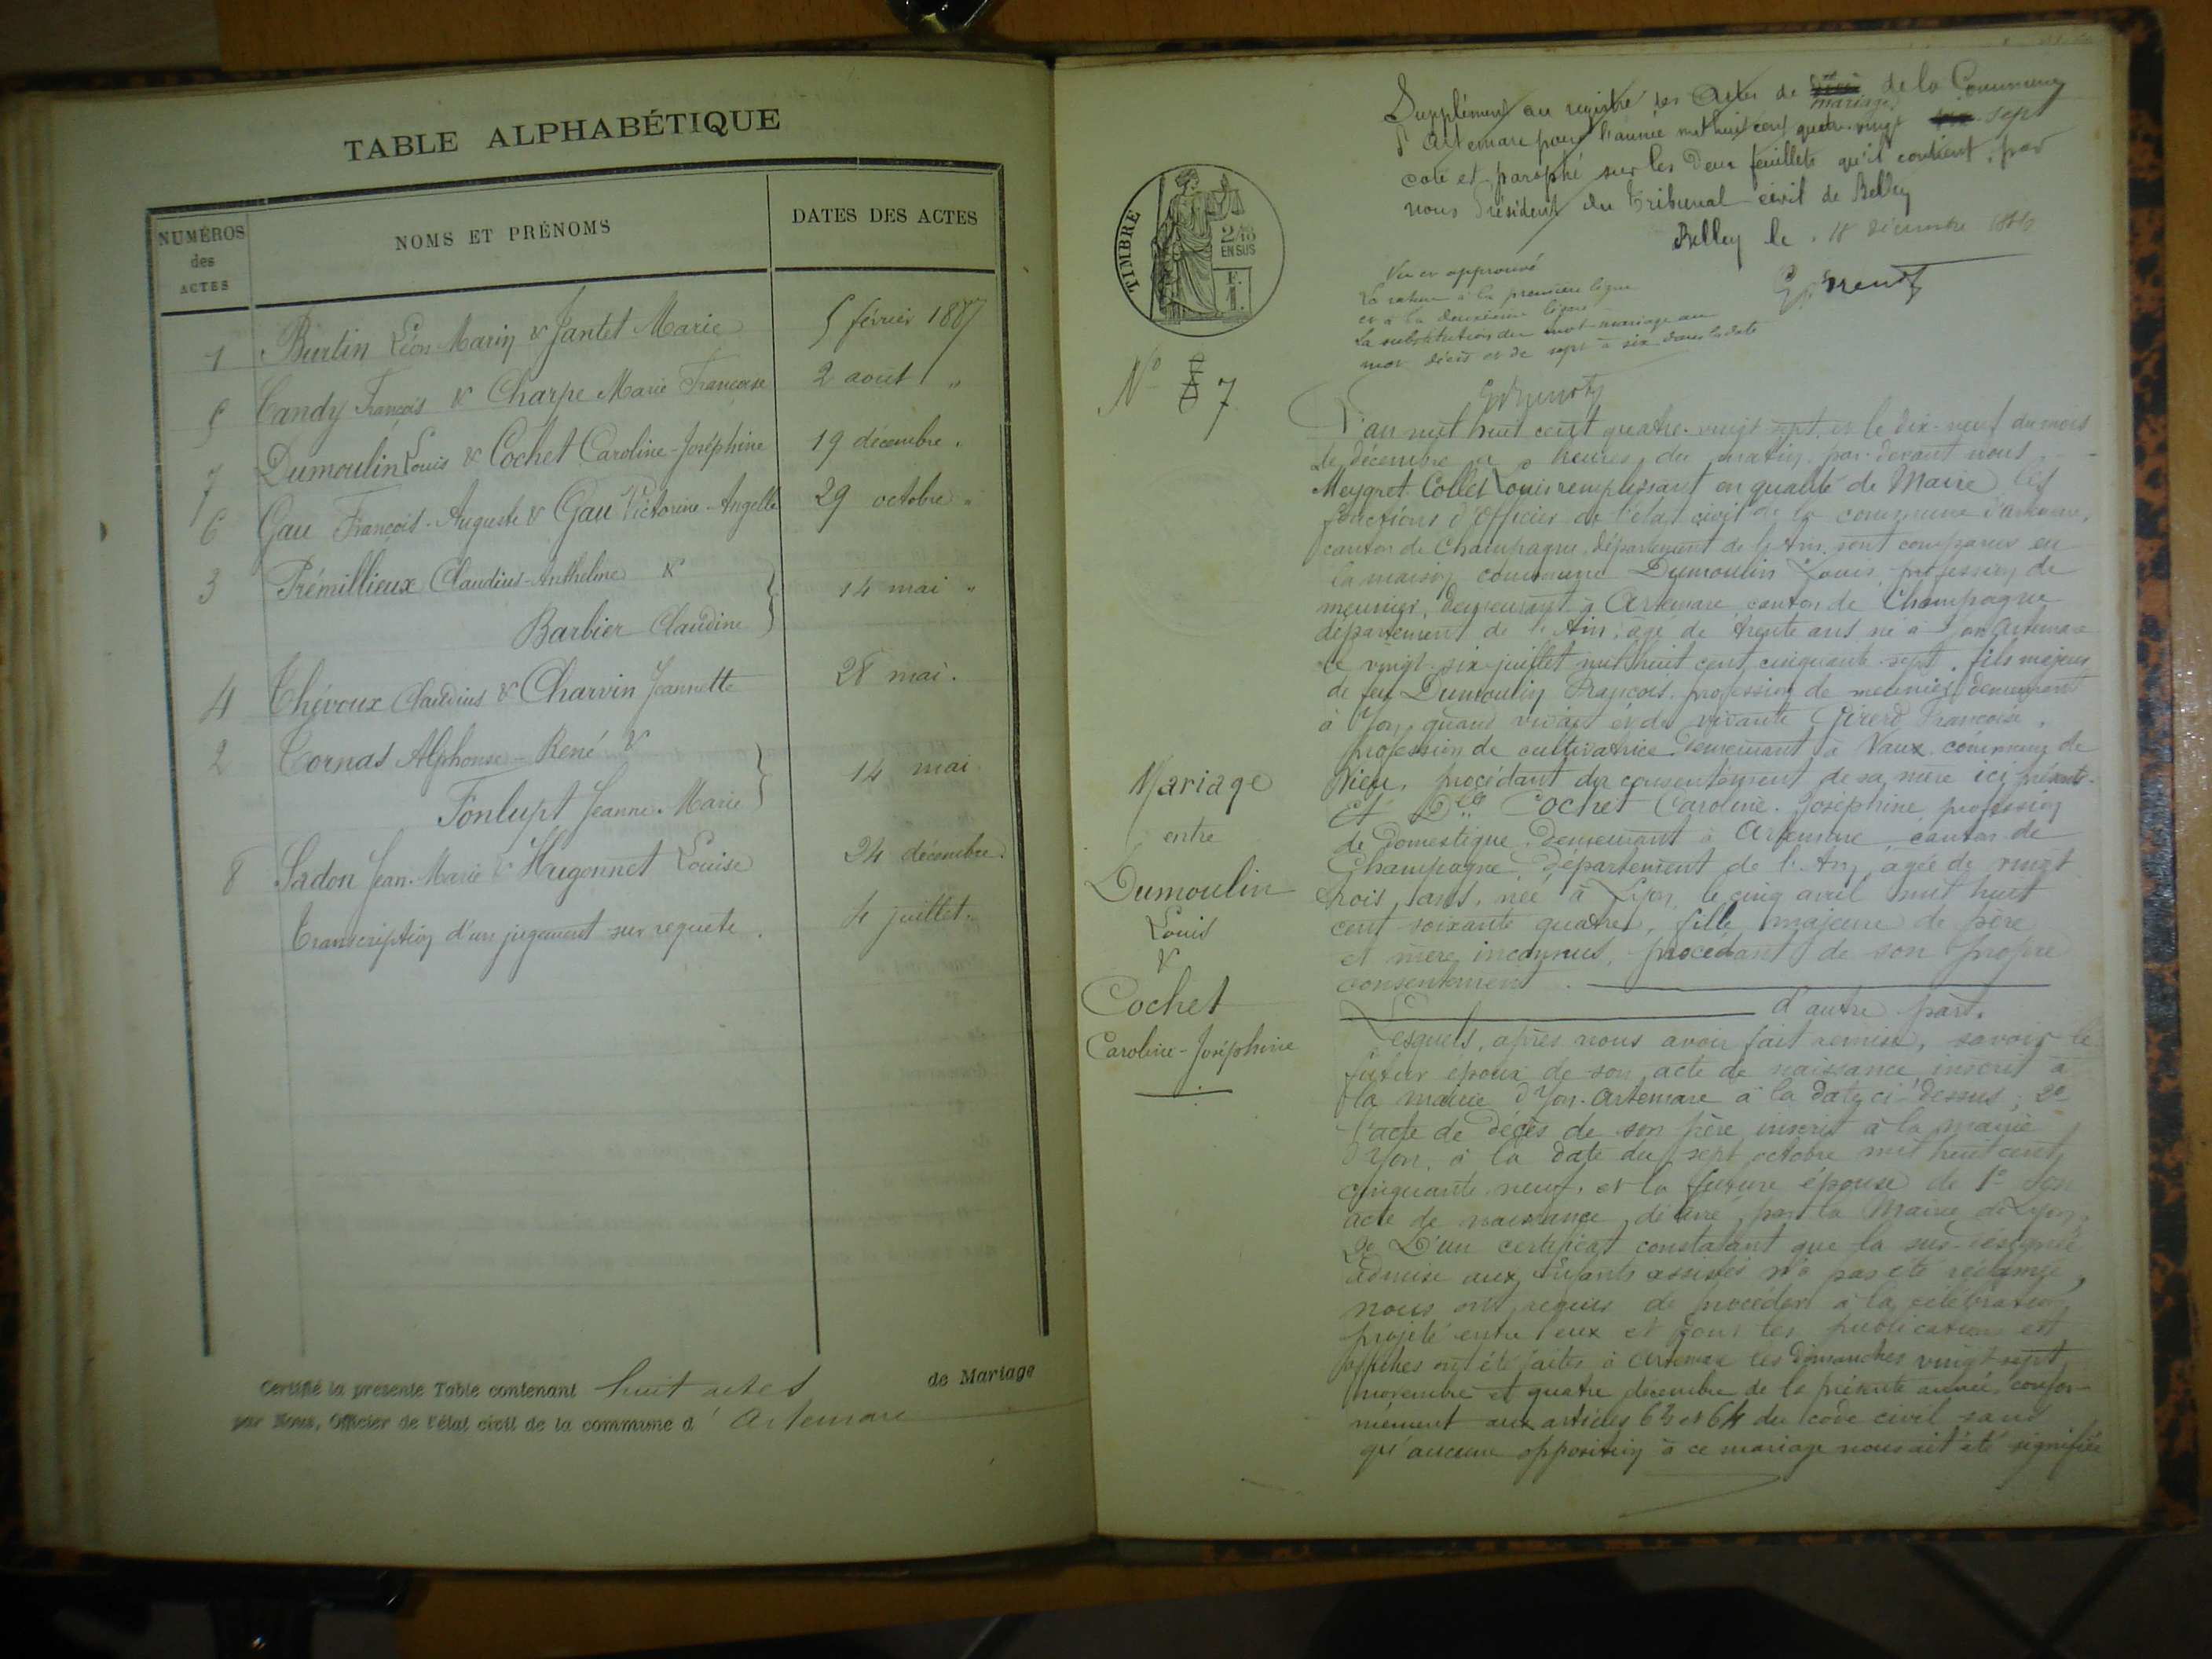 TABLE ALPHABÉTIQUE
NUMÉROS des ACTES
NOMS ET PRÉNOMS
DATES DES ACTES
1 Burtin Léon Marin & Jantet Marie 5 février 1887
5 Candy François & Charpe Marie Françoise 2 août "
7 Dumoulin Louis & Cochet Caroline-Joséphine 19 décembre "
6 Gau François-Auguste & Gau Victorine-Angelle 29 octobre "
3 Prémillieux Claudius-Anthelme &
Barbier Claudine 14 mai "
4 Thévoux Claudius & Charvin Jeannette 28 mai.
2 Tornas Alphonse-René &
Fonlupt Jeanne-Marie 14 mai
8 Sadon Jean-Marie & Hugonnet Louise 24 décembre.
Transcription d'un jugement sur requête. 4 juillet "
Certifié la présente Table contenant huit actes de Mariage
par Nous, Officier de l'état civil de la commune d'Artemare
Supplément au registre des Actes de mariages de la Commune
d'Artemare pour l'année mil huit cent quatre-vingt sept
coté et paraphé sur les deux feuillets qu'il contient, par
nous Président du Tribunal civil de Belley
Belley le 18 décembre
TIMBRE
2/10
EN SUS
F.
1.
Vu et approuvé
La rature à la première ligne
et à la deuxième ligne
La substitution du mot mariage au
mot décès et de sept à six dans la date
N° 7
L'an mil huit cent quatre-vingt sept, et le dix-neuf du mois
de décembre à heures du matin par-devant nous
Meygret Collet Louis remplissant en qualité de Maire les
fonctions d'Officier de l'état civil de la commune d'Artemare,
canton de Champagne, département de l'Ain, sont comparus en
la maison commune Dumoulin Louis, profession de
meunier, demeurant à Artemare canton de Champagne
département de l'Ain, âgé de trente ans né à Yon Artemare
le vingt-six juillet mil huit cent cinquante-sept, fils majeur
de feu Dumoulin François, profession de meunier, demeurant
à Yon, quand vivait et de vivante Girerd Françoise,
profession de cultivatrice demeurant à Vaux, commune de
procédant du consentement de sa mère ici présente.
Et Dlle Cochet Caroline-Joséphine, profession
de Domestique, demeurant à Artemare canton de
Champagne, département de l'Ain, âgée de vingt
trois ans, née à Lyon, le cinq avril mil huit
cent soixante quatre, fille majeure de père
et mère inconnus, procédant de son propre
consentement.
d'autre part.
Lesquels, après nous avoir fait remise, savoir le
futur époux de son acte de naissance inscrit à
la mairie d'Yon-Artemare à la date ci-dessus; 2°
l'acte de décès de son père inscrit à la mairie
d'Yon, à la date du sept octobre mil huit cent
cinquante neuf, et la future épouse de 1° son
acte de naissance, délivré par la Mairie de Lyon,
2° D'un certificat constatant que la sus-désignée
admise aux Enfants assistés n'a pas été réclamée,
nous ont requis de procéder à la célébration
projeté entre eux et dont les publications et
affiches ont été faites à Artemare les dimanches vingt-sept
novembre et quatre décembre de la présente année, confor-
mément aux articles 63 et 64 du code civil sans
qu'aucune opposition à ce mariage nous ait été signifiée
Mariage
entre
Dumoulin
Louis
&
Cochet
Caroline-Joséphine